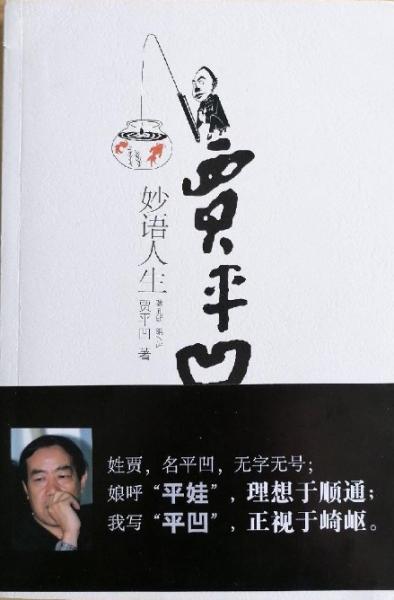 贾平凹
妙语人生
贾平凹 著
姓贾，名平凹，无字无号；
娘呼“平娃”，理想于顺通；
我写“平凹”，正视于崎岖。